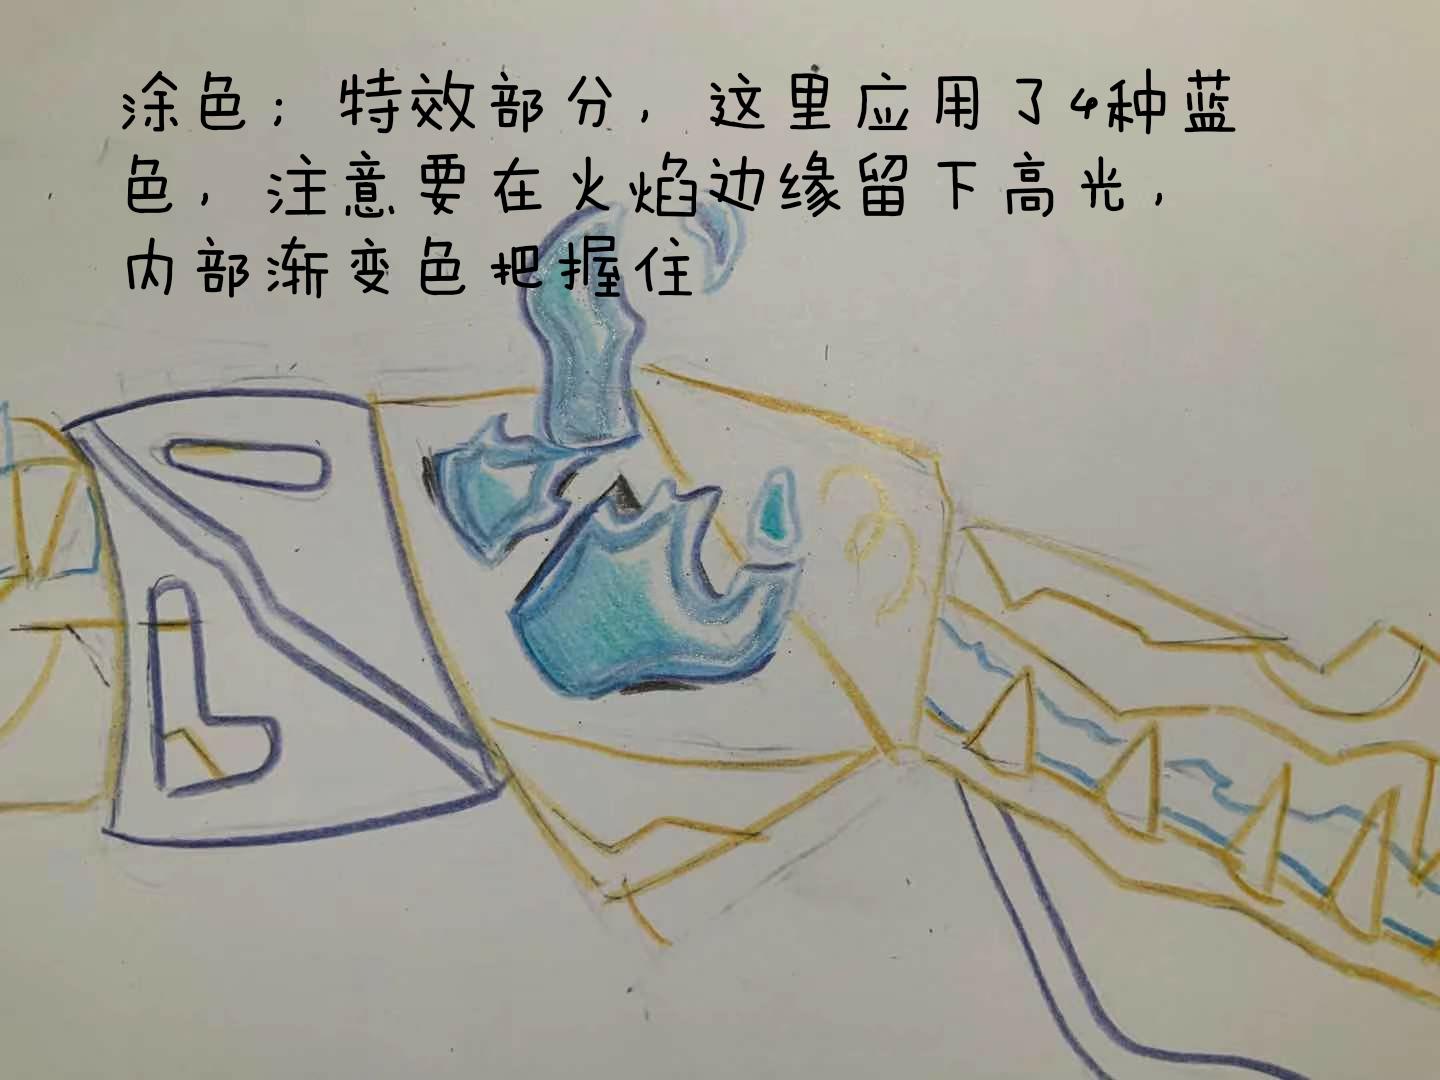 涂色；特效部分，这里应用了4种蓝
色，注意要在火焰边缘留下高光，
内部渐变色把握住